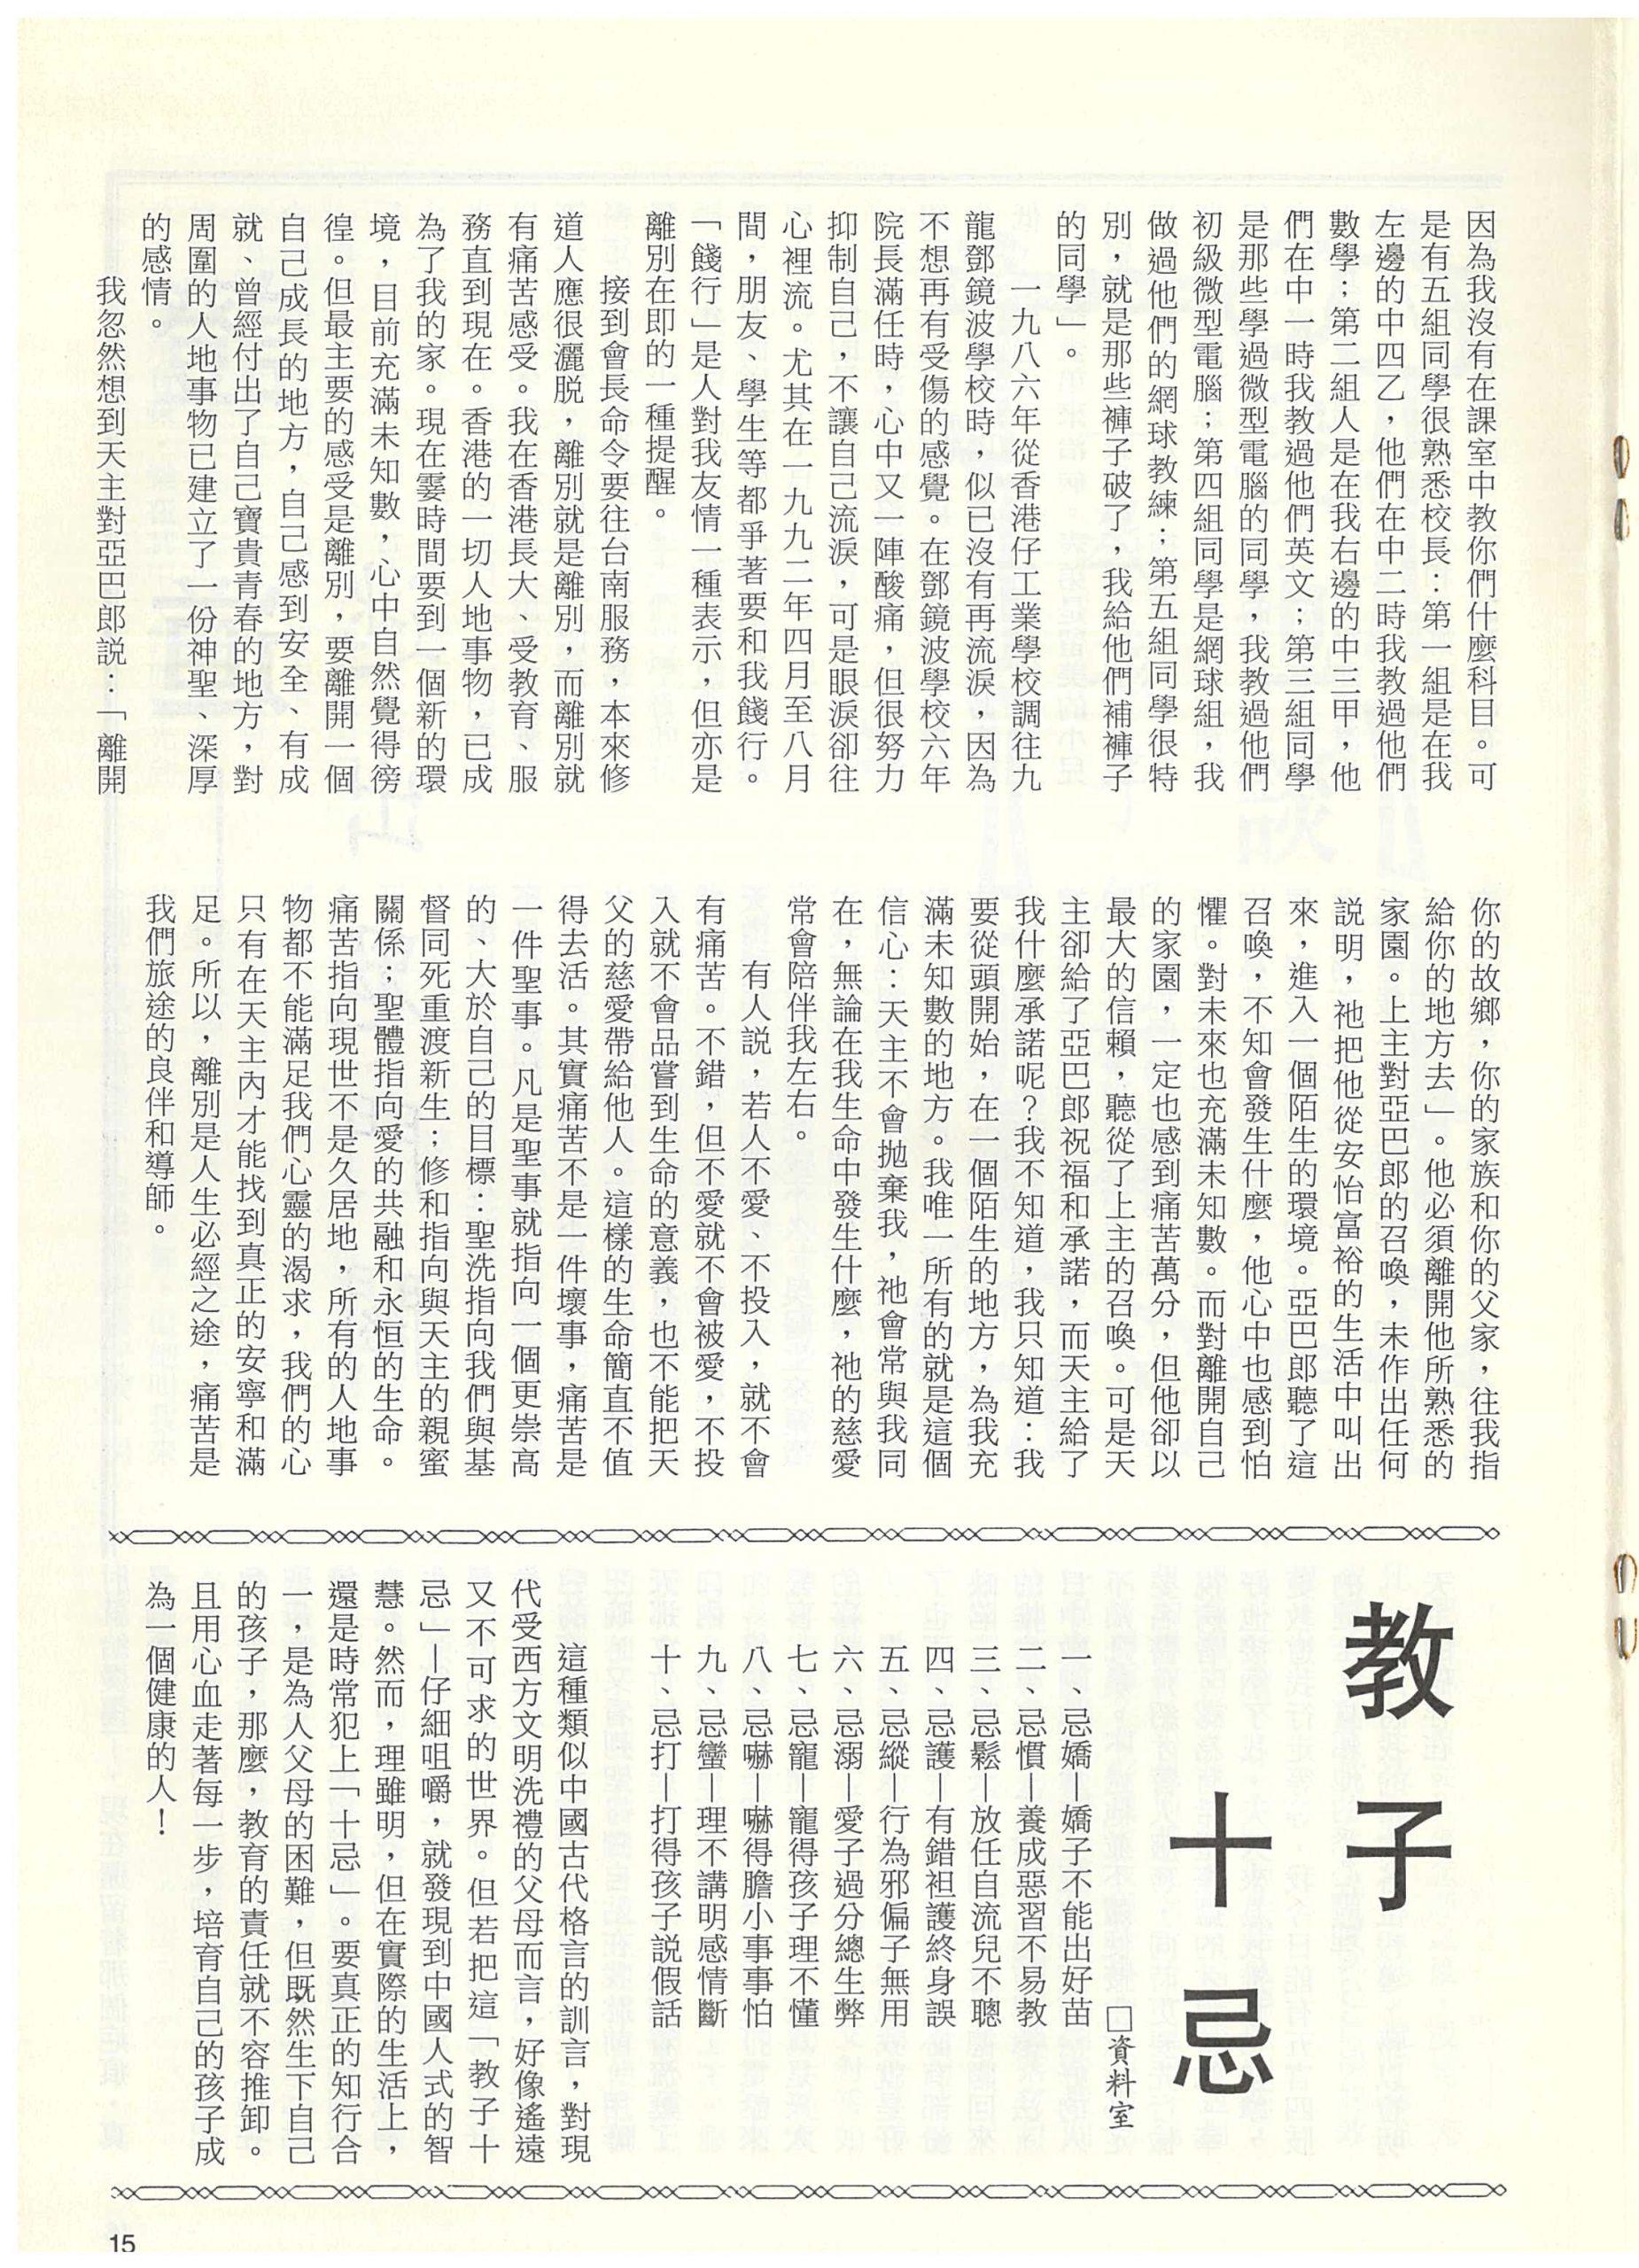 因為我沒有在課室中教你們什麼科目。可
是有五組同學很熟悉校長：第一組是在我
左邊的中四乙，他們在中二時我教過他們
數學；第二組人是在我右邊的中三甲，他
們在中一時我教過他們英文；第三組同學
是那些學過微型電腦的同學，我教過他們
初級微型電腦；第四組同學是網球組，我
做過他們的網球教練；第五組同學很特
別，就是那些褲子破了，我給他們補褲子
的同學」。
一九八六年從香港仔工業學校調往九
龍鄧鏡波學校時，似已沒有再流淚，因為
不想再有受傷的感覺。在鄧鏡波學校六年
院長滿任時，心中又一陣酸痛，但很努力
抑制自己，不讓自己流淚，可是眼淚卻往
心裡流。尤其在一九九二年四月至八月
間，朋友、學生等都爭著要和我餞行。
「餞行」是人對我友情一種表示，但亦是
離別在即的一種提醒。
接到會長命令要往台南服務，本來修
道人應很灑脱，離別就是離別，而離別就
有痛苦感受。我在香港長大、受教育、服
務直到現在。香港的一切人地事物，已成
為了我的家。現在霎時間要到一個新的環
境，目前充滿未知數，心中自然覺得徬
徨。但最主要的感受是離別，要離開一個
自己成長的地方，自己感到安全、有成
就、曾經付出了自己寶貴青春的地方，對
周圍的人地事物已建立了一份神聖、深厚
的感情。
我忽然想到天主對亞巴郎説：「離開
你的故鄉，你的家族和你的父家，往我指
給你的地方去」。他必須離開他所熟悉的
家園。上主對亞巴郎的召喚，未作出任何
説明，祂把他從安怡富裕的生活中叫出
來，進入一個陌生的環境。亞巴郎聽了這
召喚，不知會發生什麼，他心中也感到怕
懼。對未來也充滿未知數。而對離開自己
的家園，一定也感到痛苦萬分，但他卻以
最大的信賴，聽從了上主的召喚。可是天
主卻給了亞巴郎祝福和承諾，而天主給了
我什麼承諾呢？我不知道，我只知道：我
要從頭開始，在一個陌生的地方，為我充
滿未知數的地方。我唯一所有的就是這個
信心：天主不會拋棄我，祂會常與我同
在，無論在我生命中發生什麼，祂的慈愛
常會陪伴我左右。
有人説，若人不愛、不投入，就不會
有痛苦。不錯，但不愛就不會被愛，不投
入就不會品嘗到生命的意義，也不能把天
父的慈愛帶給他人。這樣的生命簡直不值
得去活。其實痛苦不是一件壞事，痛苦是
一件聖事。凡是聖事就指向一個更崇高
的、大於自己的目標：聖洗指向我們與基
督同死重渡新生；修和指向與天主的親蜜
關係；聖體指向愛的共融和永恒的生命。
痛苦指向現世不是久居地，所有的人地事
物都不能滿足我們心靈的渴求，我們的心
只有在天主內才能找到真正的安寧和滿
足。所以，離別是人生必經之途，痛苦是
我們旅途的良伴和導師。
教子
十忌
□資料室
一、忌嬌—嬌子不能出好苗
二、忌慣—養成惡習不易教
三、忌鬆—放任自流兒不聰
四、忌護—有錯袒護終身誤
五、忌縱—行為邪偏子無用
六、忌溺—愛子過分總生弊
七、忌寵—寵得孩子理不懂
八、忌嚇—嚇得膽小事事怕
九、忌蠻—理不講明感情斷
十、忌打—打得孩子説假話
這種類似中國古代格言的訓言，對現
代受西方文明洗禮的父母而言，好像遙遠
又不可求的世界。但若把這「教子十
忌」—仔細咀嚼，就發現到中國人式的智
慧。然而，理雖明，但在實際的生活上，
還是時常犯上「十忌」。要真正的知行合
一，是為人父母的困難，但既然生下自己
的孩子，那麼，教育的責任就不容推卸。
且用心血走著每一步，培育自己的孩子成
為一個健康的人！
15